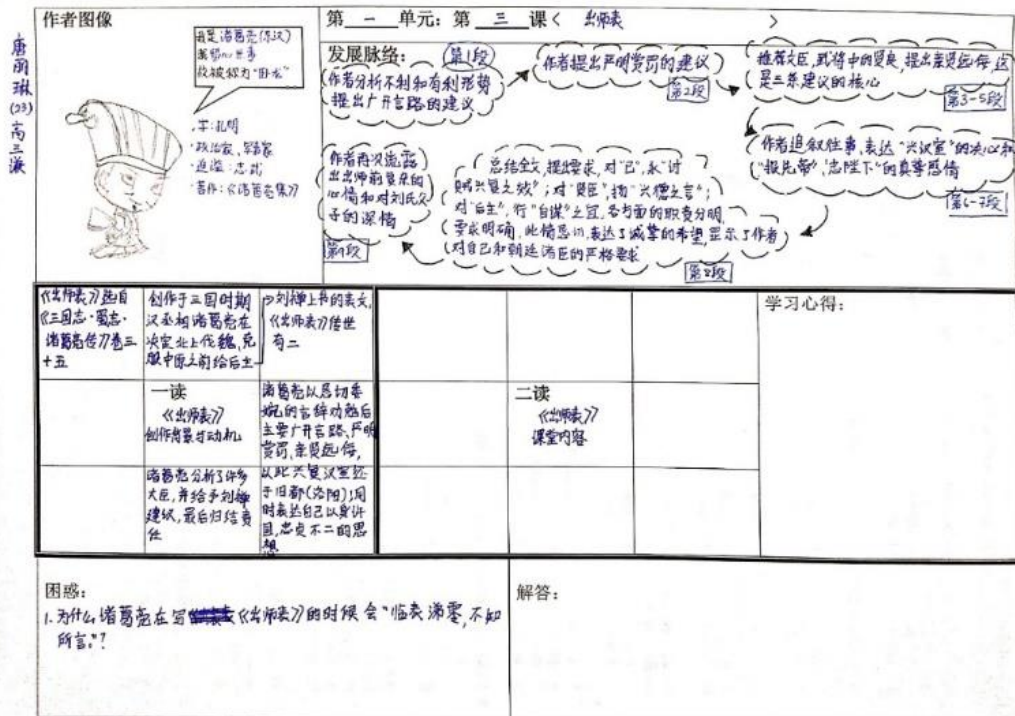 唐丽琳(23)高三谦
作者图像
我是诸葛亮(东汉)
故被称为"卧龙"
·字:孔明
·政治家、军事家
·追谥:忠武
·著作:《诸葛亮集》
第 一 单元:第 三 课< 出师表 >
发展脉络:
第1段
作者分析不利和有利形势
提出广开言路的建议
作者提出严明赏罚的建议
第2段
推荐文臣,武将中的贤良,提出亲贤远佞,这
是三条建议的核心
第3-5段
作者追叙往事,表达"兴汉室"的决心和
"报先帝","忠陛下"的真挚感情
第6-7段
总结全文,提出要求,对"己",永"讨
贼兴复之效";对"贤臣",扬"兴德之言";
对"后主",行"自谋"之宜,各方面的职责分明,
要求明确,此情恳切,表达了诚挚的希望,显示了作者
对自己和朝廷诸臣的严格要求
第8段
作者再次流露
出出师前复杂的
心情和对刘氏父
子的深情
第9段
《出师表》选自
《三国志·蜀志·
诸葛亮传》卷三
十五
创作于三国时期
汉丞相诸葛亮在
决定北上伐魏,克
服中原之前给后主
→刘禅上书的表文,
《出师表》传世
有二
一读
《出师表》
创作背景与动机
诸葛亮以恳切委
婉的言辞劝勉后
主要广开言路、严明
赏罚、亲贤远佞,
诸葛亮分析了许多
大臣,并给予刘禅
建议,最后归结责
任
以此兴复汉室还
于旧都(洛阳);同
时表达自己以身许
国,忠贞不二的思
想
二读
《出师表》
课堂内容
学习心得:
困惑:
1. 为什么诸葛亮在写《出师表》的时候会"临表涕零,不知
所言。"?
解答: